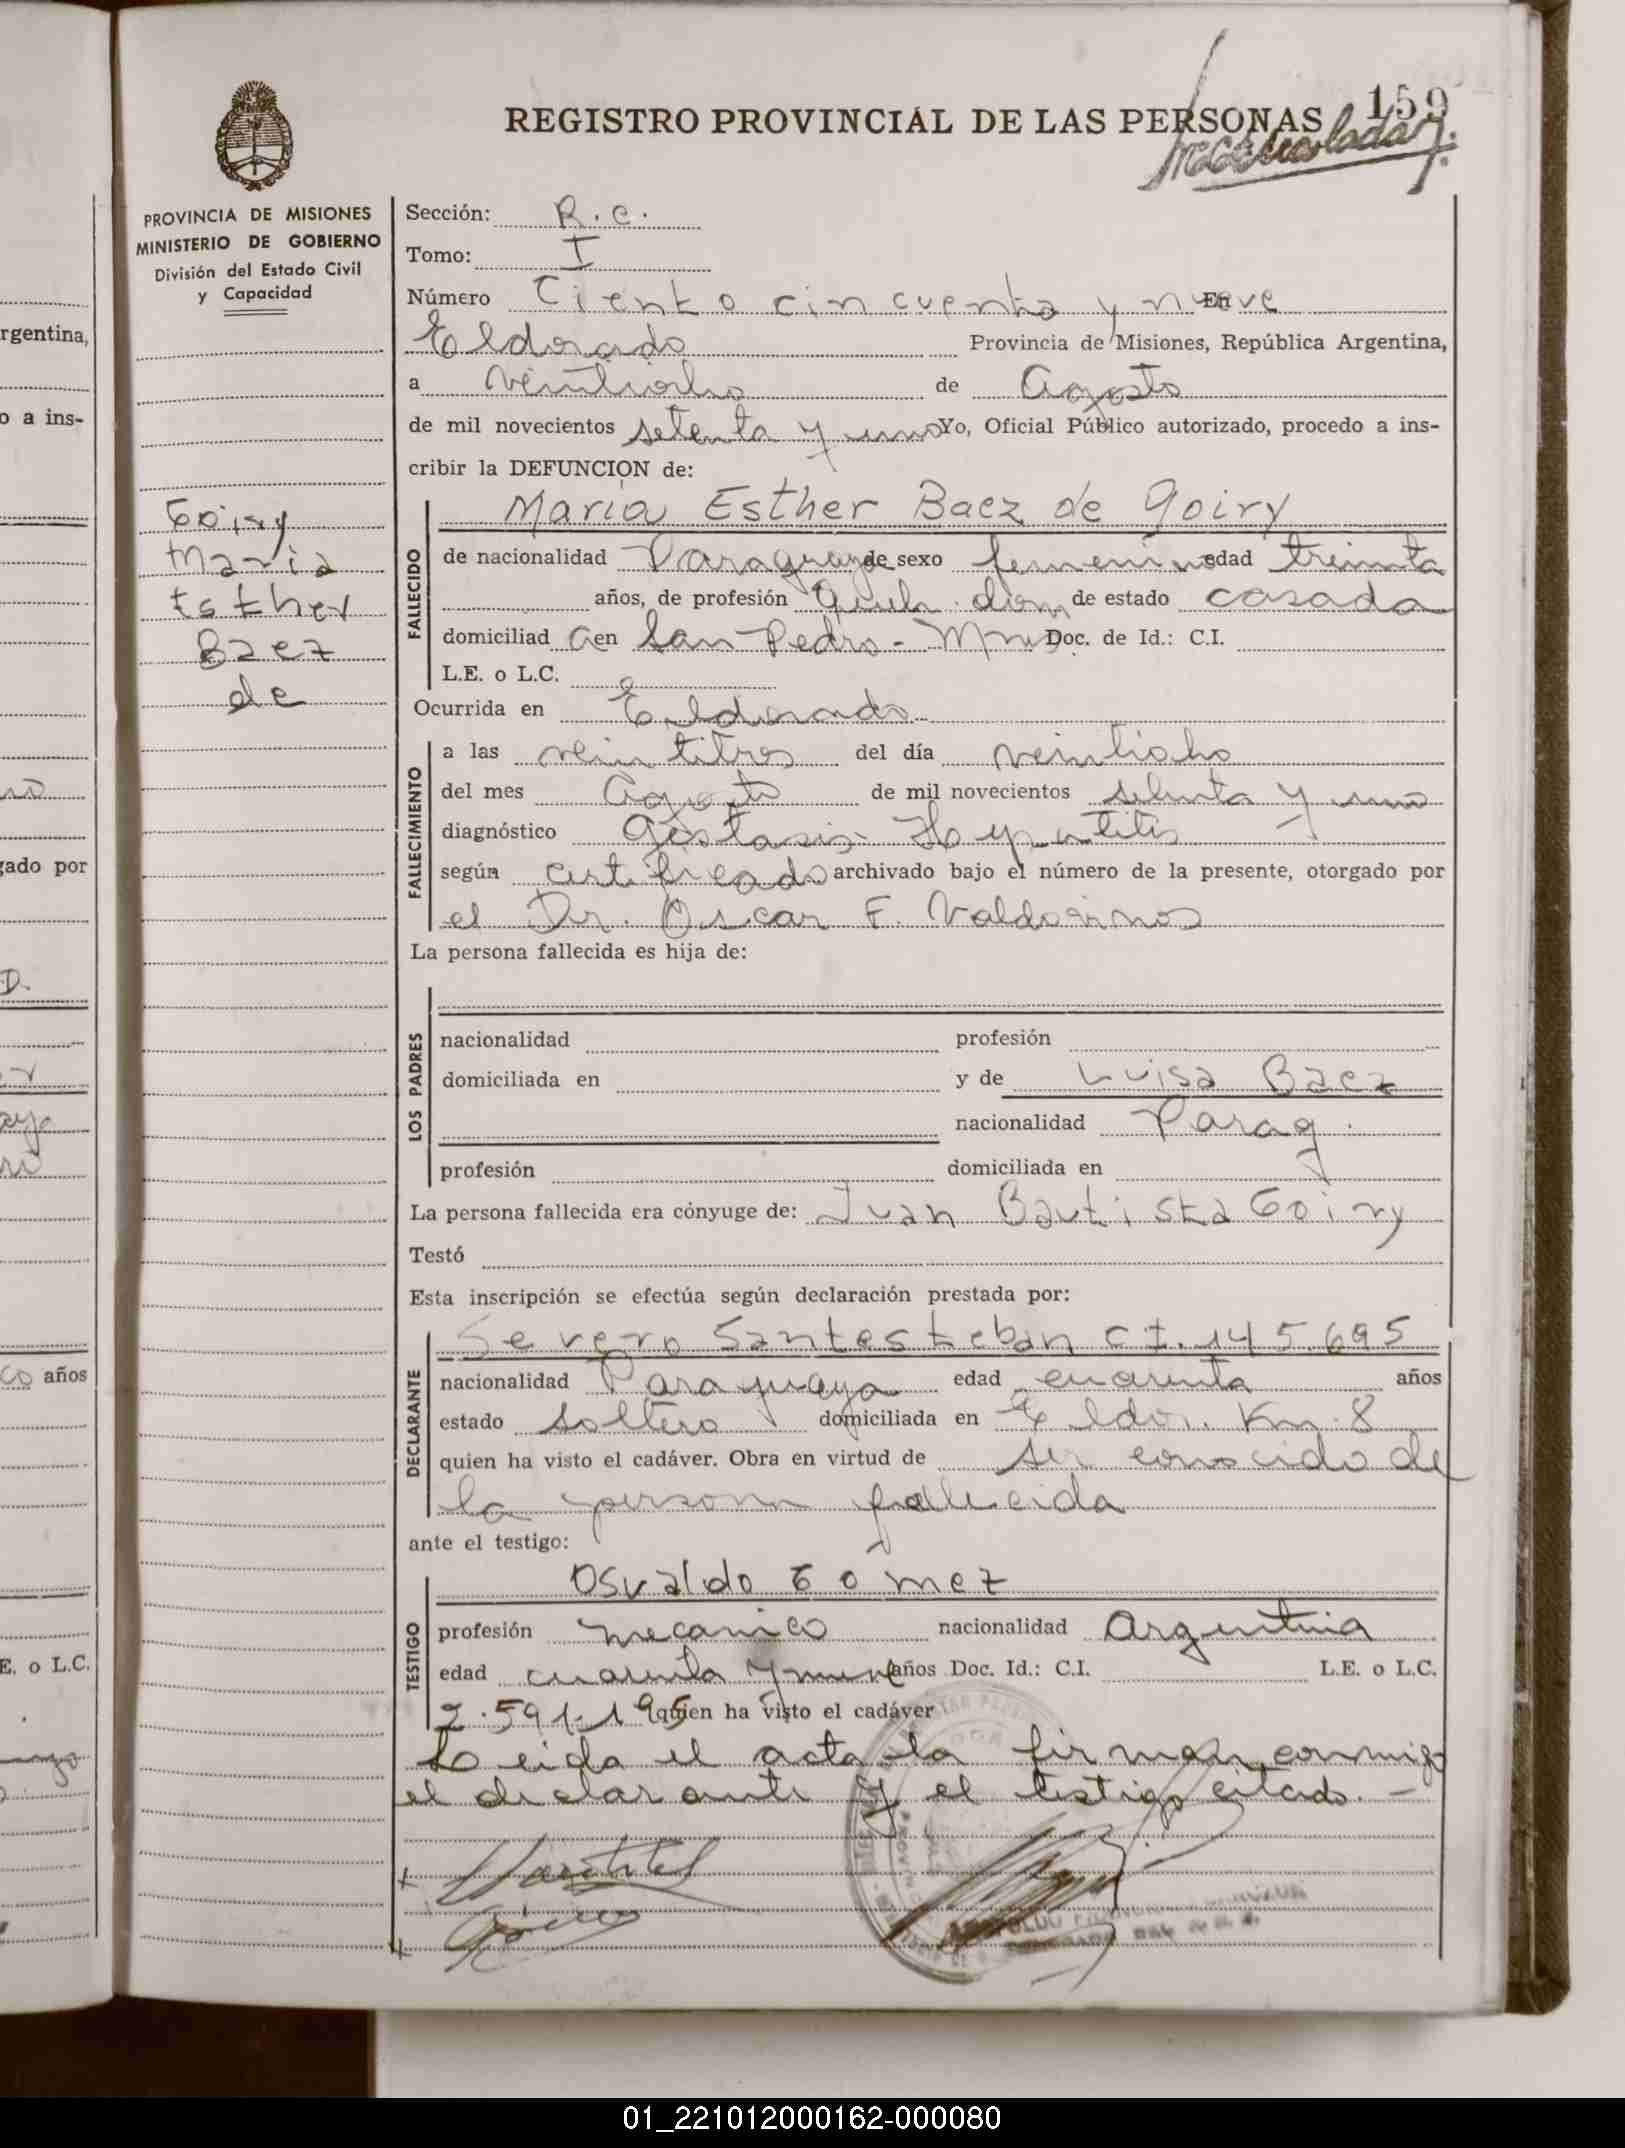 REGISTRO PROVINCIAL DE LAS PERSONAS 159
PROVINCIA DE MISIONES
MINISTERIO DE GOBIERNO
División del Estado Civil
y Capacidad
Goiry
Maria
Esther
Baez
de
Sección: R.C.
Tomo: I
Número Ciento cincuenta y nueve En
Eldorado Provincia de Misiones, República Argentina,
a veintiocho de Agosto
de mil novecientos setenta y uno Yo, Oficial Público autorizado, procedo a ins-
cribir la DEFUNCION de:
FALLECIDO
Maria Esther Baez de Goiry
de nacionalidad Paraguaya de sexo femenino edad treinta
años, de profesión Queh. dom de estado casada
domiciliad a en San Pedro - Mnes Doc. de Id.: C.I.
L.E. o L.C.
Ocurrida en Eldorado
FALLECIMIENTO
a las veintitres del día veintiocho
del mes Agosto de mil novecientos setenta y uno
diagnóstico Hepatitis
según certificado archivado bajo el número de la presente, otorgado por
el Dr. Oscar F.
La persona fallecida es hija de:
LOS PADRES
nacionalidad profesión
domiciliada en y de Luisa Baez
nacionalidad Parag.
profesión domiciliada en
La persona fallecida era cónyuge de: Juan Bautista Goiry
Testó
Esta inscripción se efectúa según declaración prestada por:
DECLARANTE
Severo Santesteban C I. 145.695
nacionalidad Paraguaya edad cuarenta años
estado soltero domiciliada en Eldor. Km. 8
quien ha visto el cadáver. Obra en virtud de ser conocido de
la persona fallecida
ante el testigo:
TESTIGO
Osvaldo Gomez
profesión mecanico nacionalidad Argentina
edad cuarenta y nueve años Doc. Id.: C.I. L.E. o L.C.
2.591.195 quien ha visto el cadáver
Leida el acta la firman conmigo
el declarante y el testigo citado. -
rgentina,
o a ins-
gado por
D.
años
E. o L.C.
01_221012000162-000080